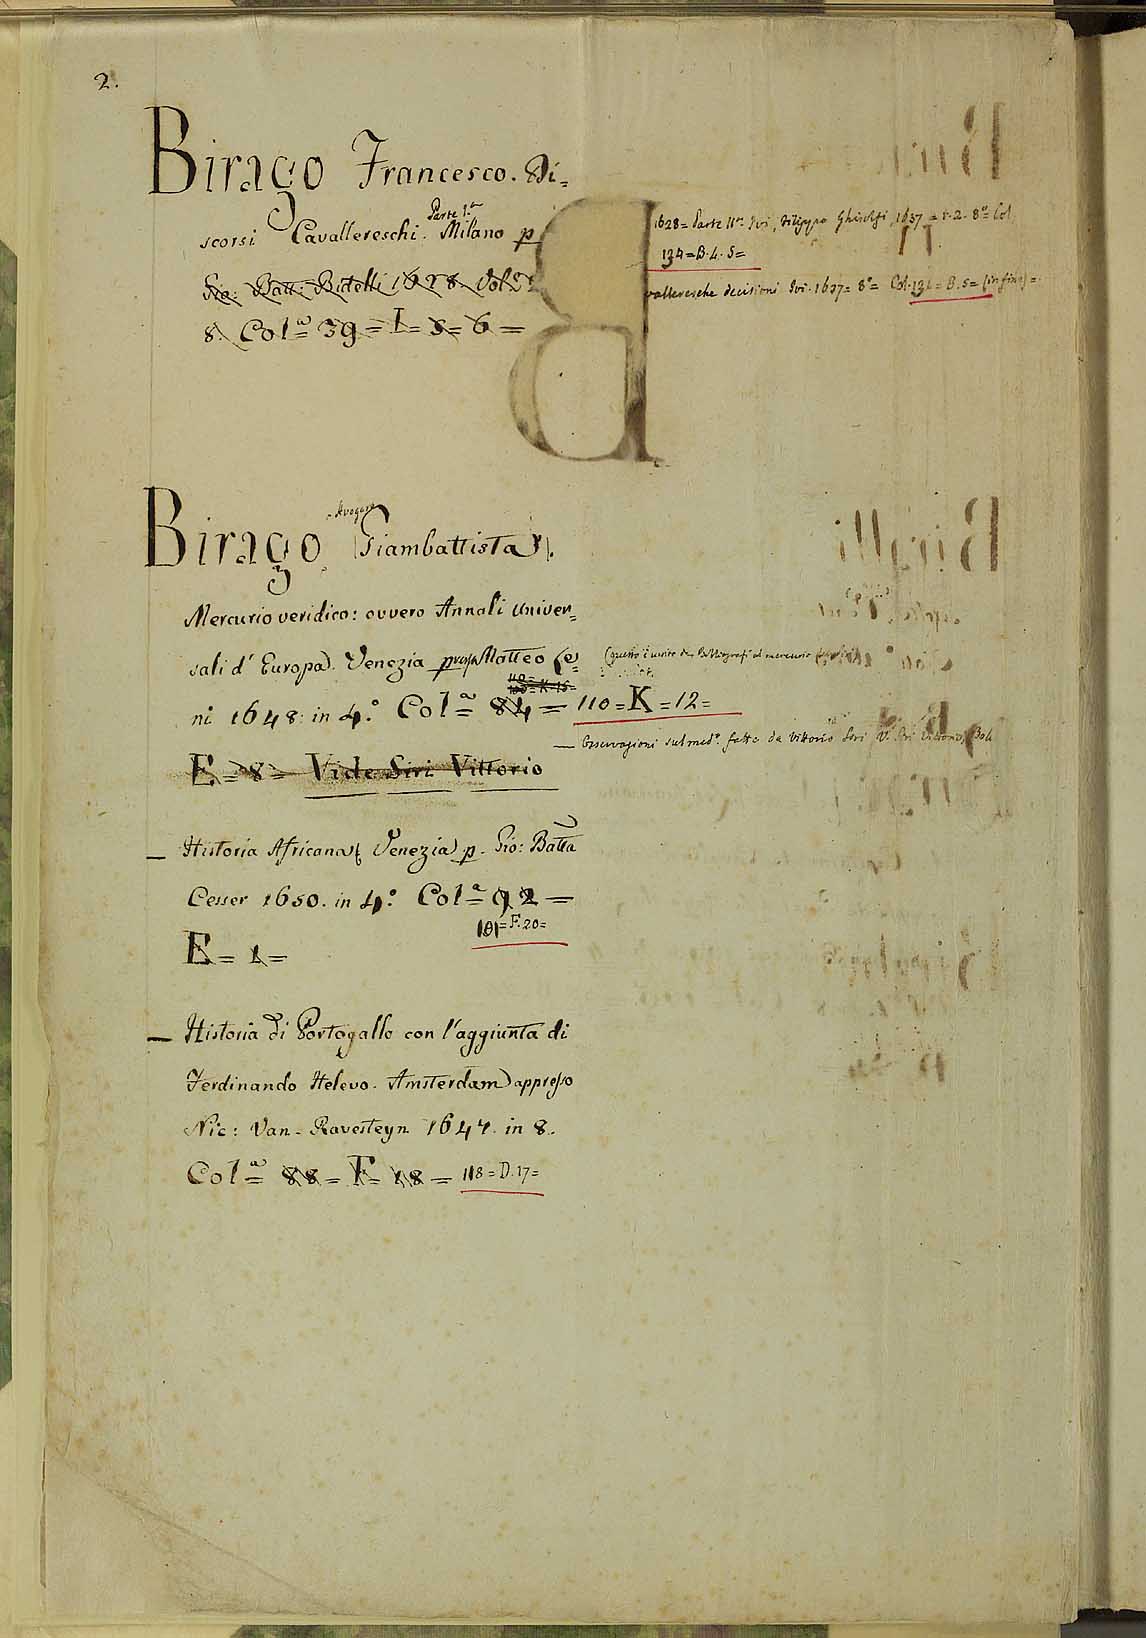 2.
Birago Francesco. Di=
Parte 1.a
scorsi Cavallereschi. Milano p
Gio: Batt: Bidelli 1628. Vol. 2
8. Col.a 39 = I = 5 = 6 =
1628 = Parte II.a Ivi, Filippo Ghisolfi, 1637 = t. 2. 8.o Col.
134 = B. 4. 5 =
valleresche decisioni Ivi. 1637 = 8.o = Col. 134 = B. 5 = (in fine) =
B
Avogaro
Birago (Giambattista).
Mercurio veridico: ovvero Annali univer=
sali d' Europa. Venezia presso Matteo Le=
ni 1648: in 4.o Col.a 84 = 110 = K = 12 =
E = 8 = Vide Siri Vittorio
— Osservazioni sul med.o fatte da Vittorio Siri V. Siri Vittorio
— Historia Africana Venezia p. Gio: Batta
Cesser 1650. in 4.o Col.a 92 =
101 = F. 20 =
E = 1 =
— Historia di Portogallo con l'aggiunta di
Ferdinando Helevo. Amsterdam appresso
Nic: Van-Ravesteyn 1647. in 8.
Col.a 88 = F = 18 = 118 = D. 17 =